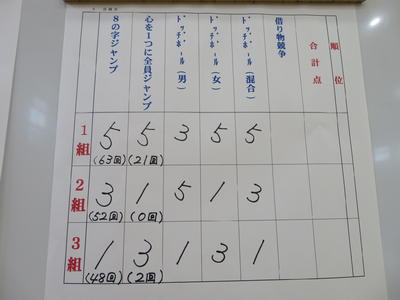 8の字ジャンプ
心を1つに全員ジャンプ
ドッチボール(男)
ドッチボール(女)
ドッチボール(混合)
借り物競争
合計点
順位
1組 5 5 3 5 5
(63回) (21回)
2組 3 1 5 1 3
(52回) (0回)
3組 1 3 1 3 1
(48回) (2回)